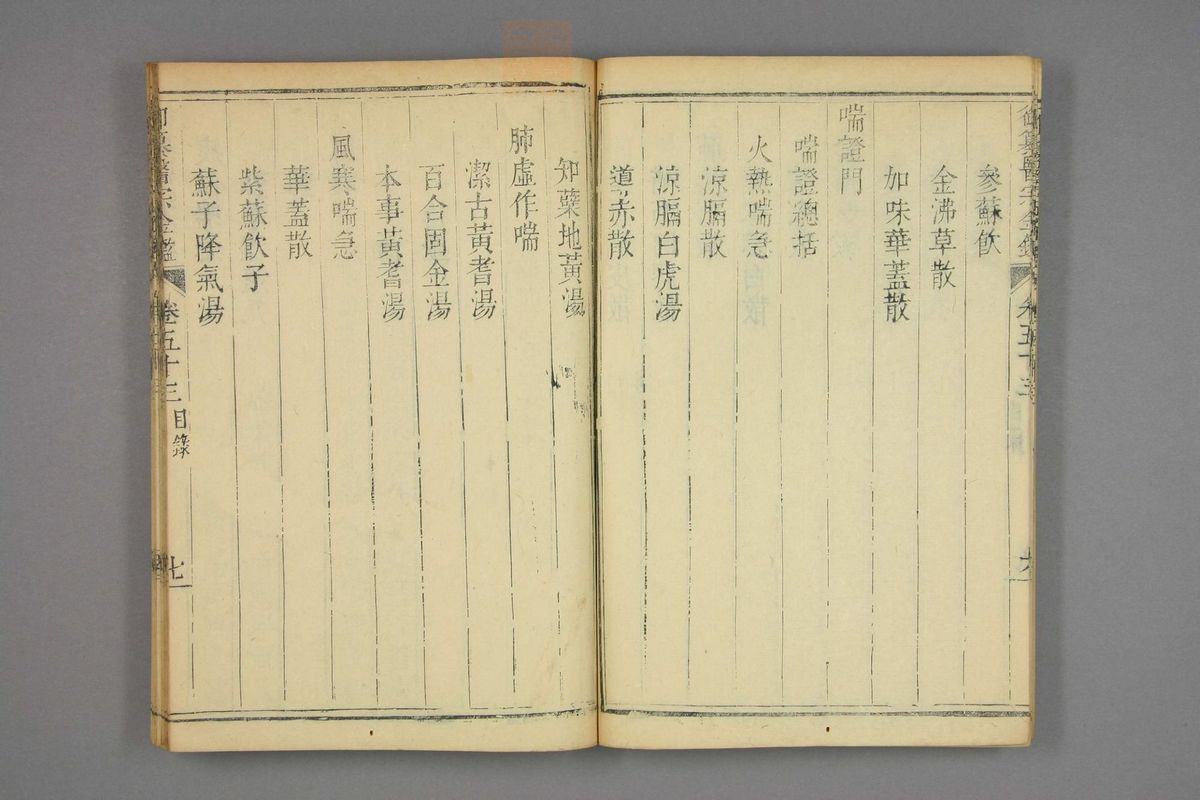 參蘇飲
金沸草散
加味華蓋散
喘證門
喘證總括
火熱喘急
涼膈散
涼膈白虎湯
道赤散
知蘗地黃湯
肺虛作喘
潔古黃耆湯
百合固金湯
本事黃耆湯
風寒喘急
華蓋散
紫蘇飲子
蘇子降氣湯
卷五十三 目錄
七